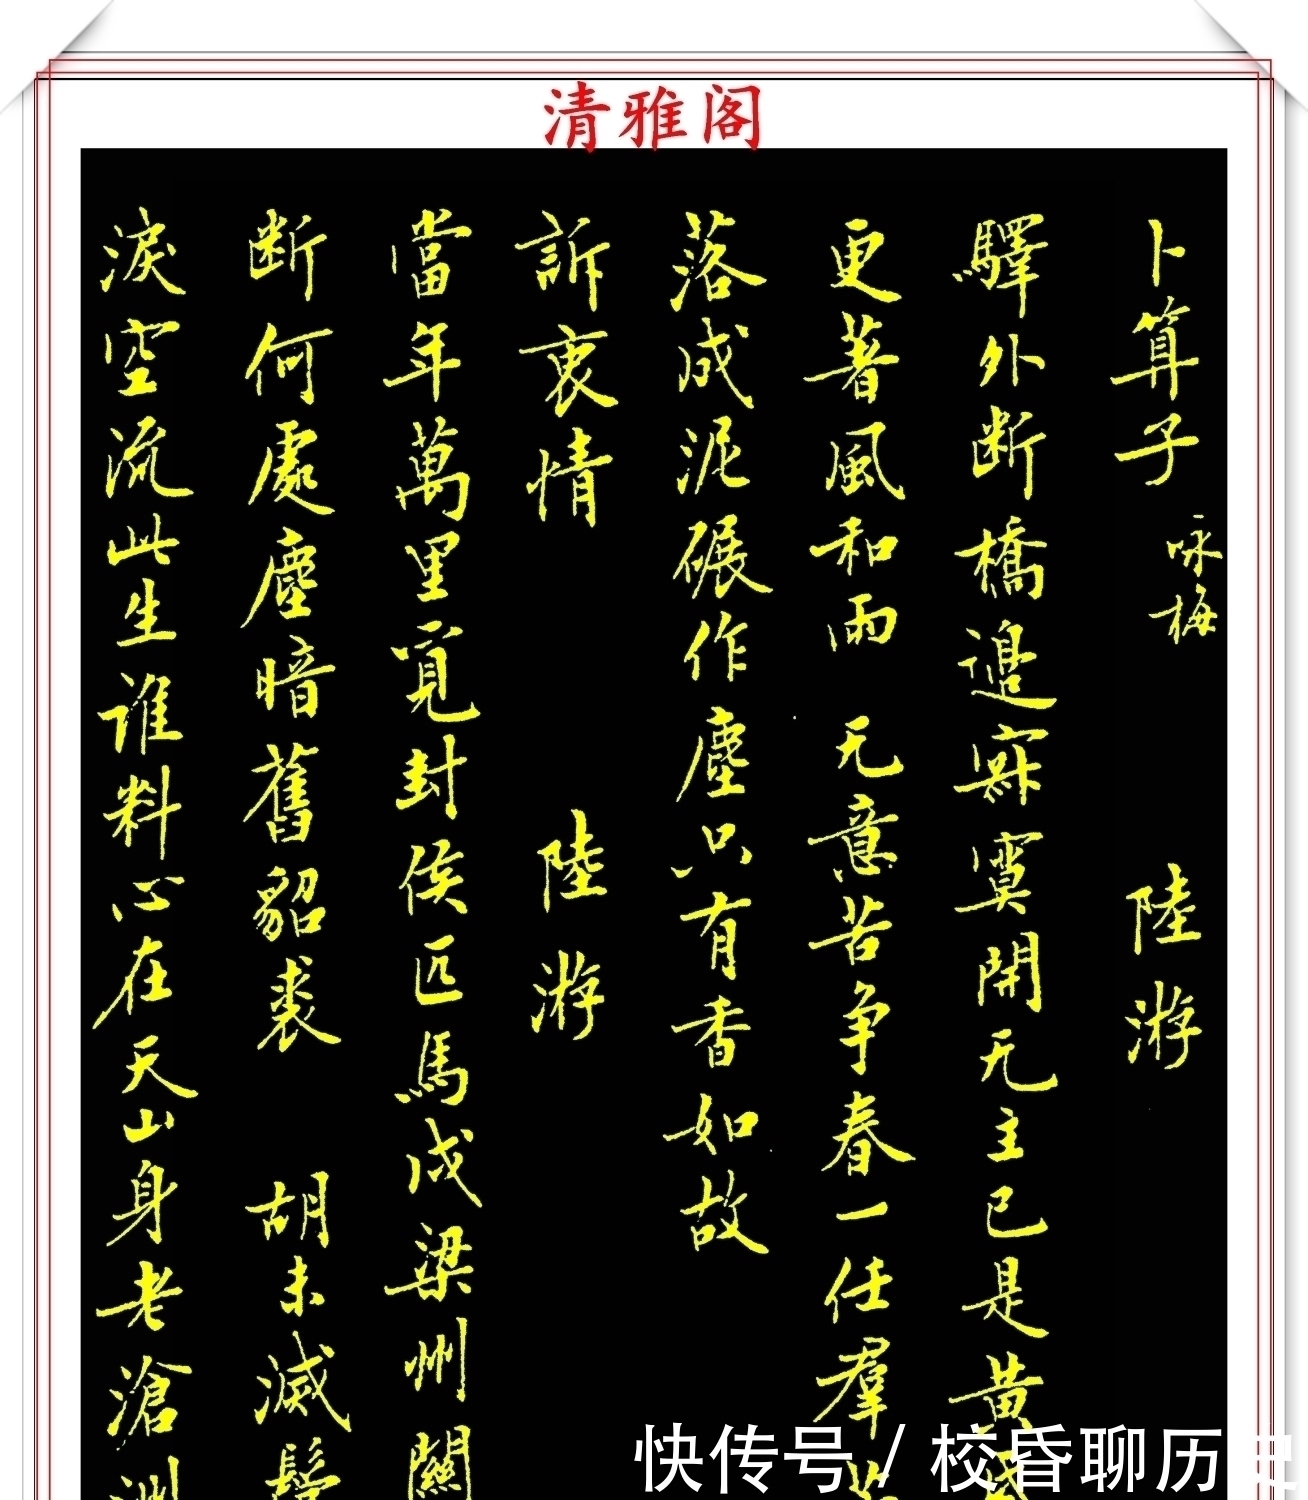 清雅阁
卜算子 咏梅 陸游
驛外断橋邉寂寞開无主已是黄
更著風和雨 无意苦争春一任羣
落成泥碾作塵只有香如故
訴衷情 陸游
當年萬里覓封侯匹馬戍梁州關
断何處塵暗舊貂裘 胡未滅鬢
淚空流此生谁料心在天山身老滄洲
快传号 / 校昏聊历史